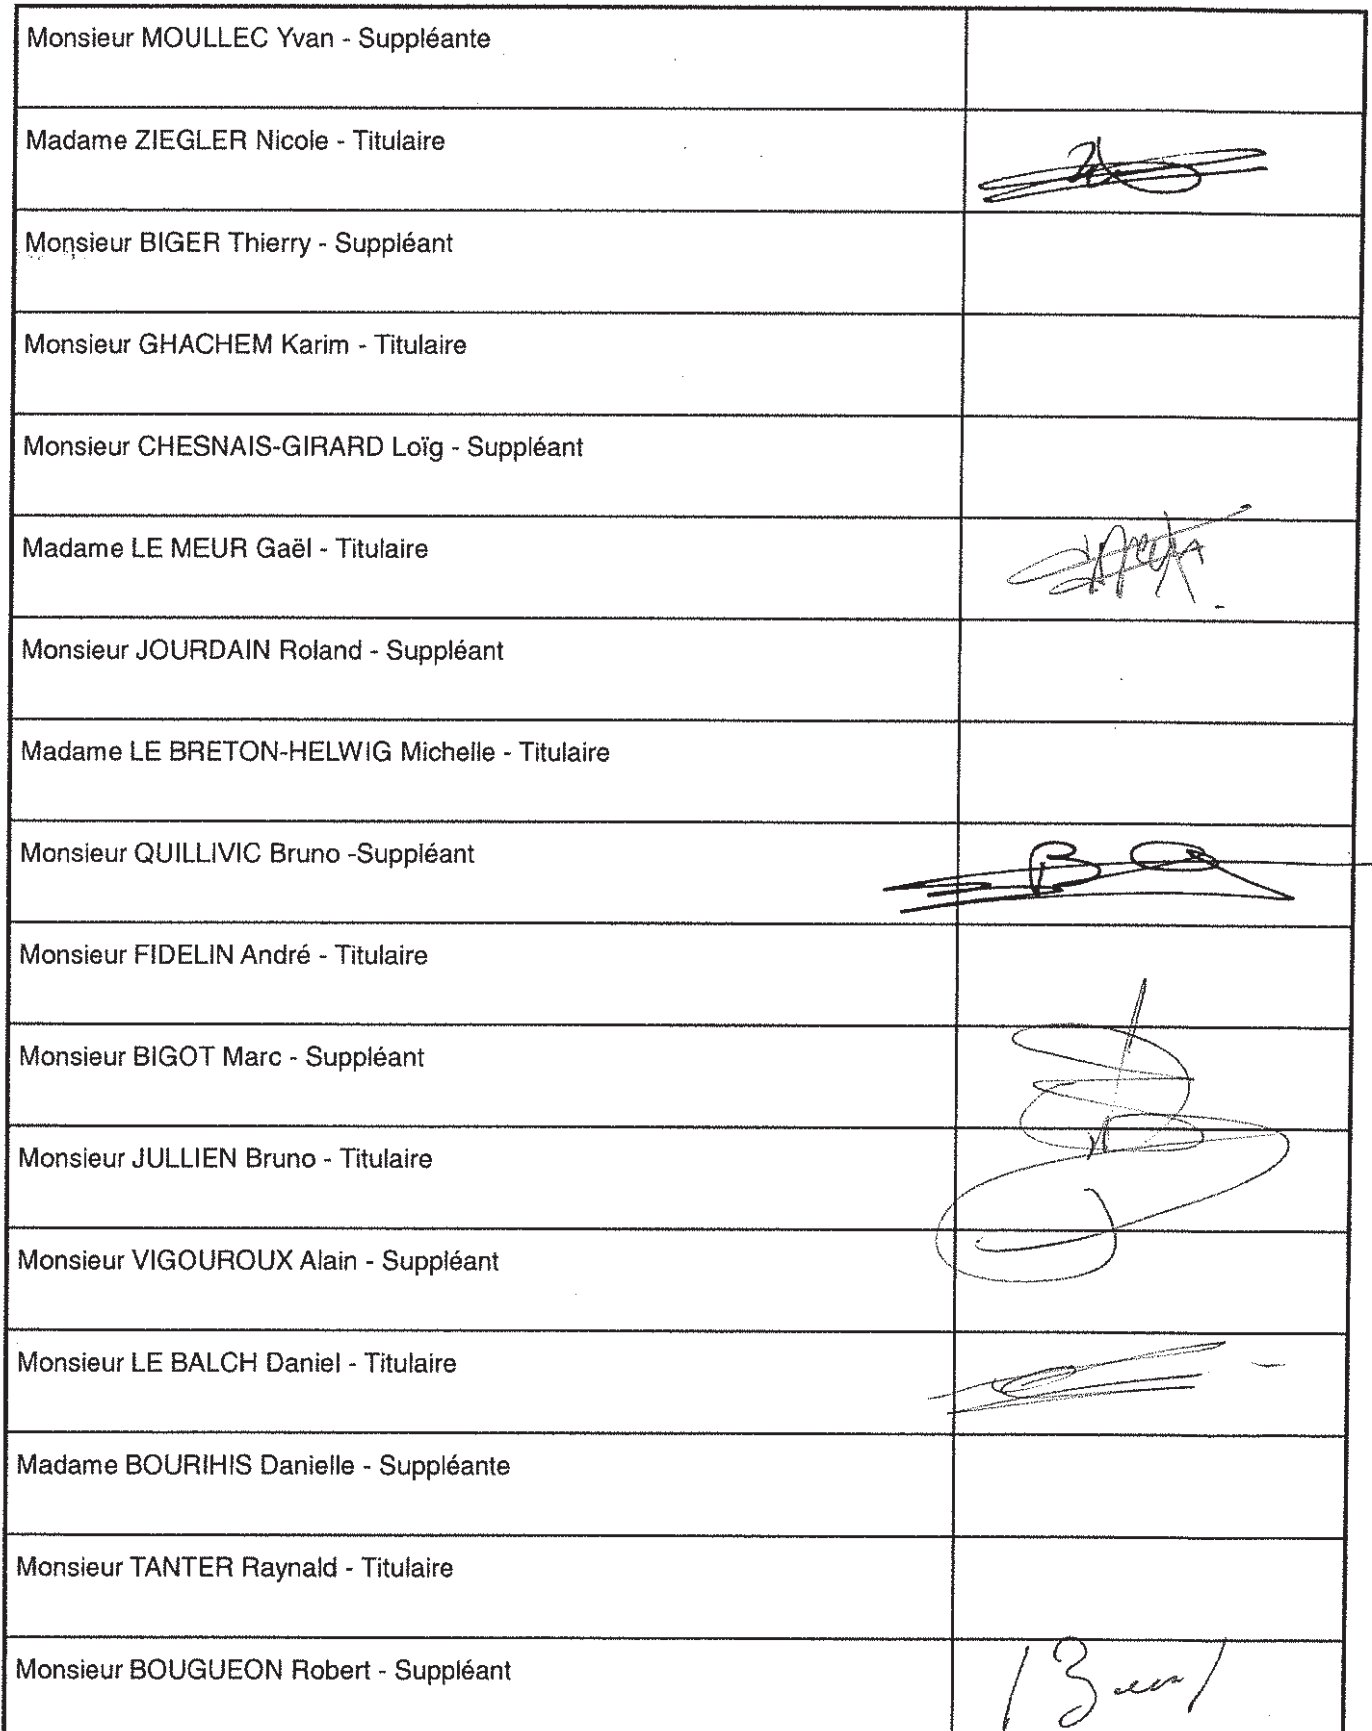 Monsieur MOULLEC Yvan - Suppléante
Madame ZIEGLER Nicole - Titulaire
Monsieur BIGER Thierry - Suppléant
Monsieur GHACHEM Karim - Titulaire
Monsieur CHESNAIS-GIRARD Loïg - Suppléant
Madame LE MEUR Gaël - Titulaire
Monsieur JOURDAIN Roland - Suppléant
Madame LE BRETON-HELWIG Michelle - Titulaire
Monsieur QUILLIVIC Bruno -Suppléant
Monsieur FIDELIN André - Titulaire
Monsieur BIGOT Marc - Suppléant
Monsieur JULLIEN Bruno - Titulaire
Monsieur VIGOUROUX Alain - Suppléant
Monsieur LE BALCH Daniel - Titulaire
Madame BOURIHIS Danielle - Suppléante
Monsieur TANTER Raynald - Titulaire
Monsieur BOUGUEON Robert - Suppléant